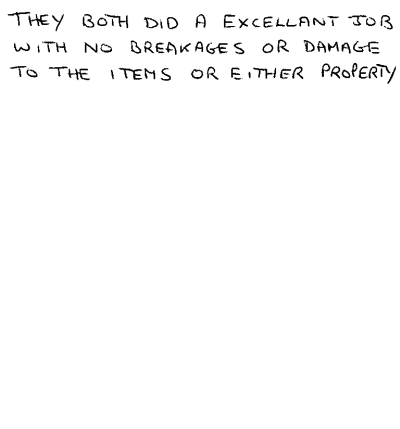 THEY BOTH DID A EXCELLANT JOB
WITH NO BREAKAGES OR DAMAGE
TO THE ITEMS OR EITHER PROPERTY